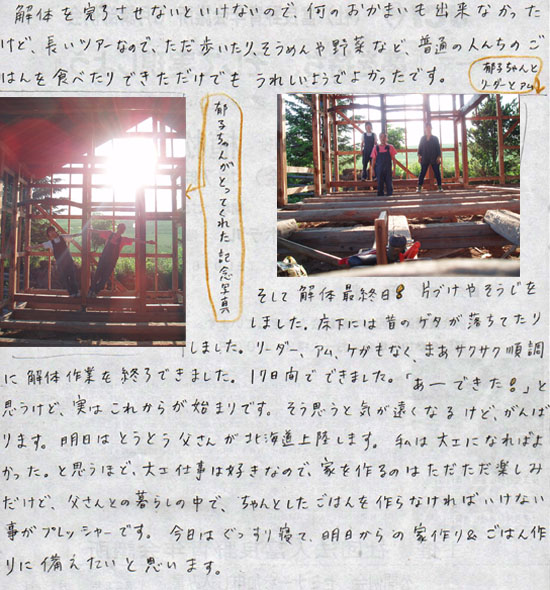 解体を完了させないといけないので、何のおかまいも出来なかった
けど、長いツアーなので、ただ歩いたり、そうめんや野菜など、普通の人んちのご
はんを食べたりできただけでも うれしいようでよかったです。
郁子ちゃんと
リーダーとアム
郁子ちゃんがとってくれた記念写真
そして解体最終日! 片づけやそうじを
しました。床下には昔のゲタが落ちてたり
しました。リーダー、アム、ケガもなく、まあサクサク順調
に解体作業を終了できました。17日間でできました。「あーできた!」と
思うけど、実はこれからが始まりです。そう思うと気が遠くなるけど、がんば
ります。明日はとうとう父さんが北海道上陸します。私は大工になればよ
かった。と思うほど、大工仕事は好きなので、家を作るのはただただ楽しみ
だけど、父さんとの暮らしの中で、ちゃんとしたごはんを作らなければいけない
事がプレッシャーです。今日はぐっすり寝て、明日からの家作り&ごはん作
りに備えたいと思います。